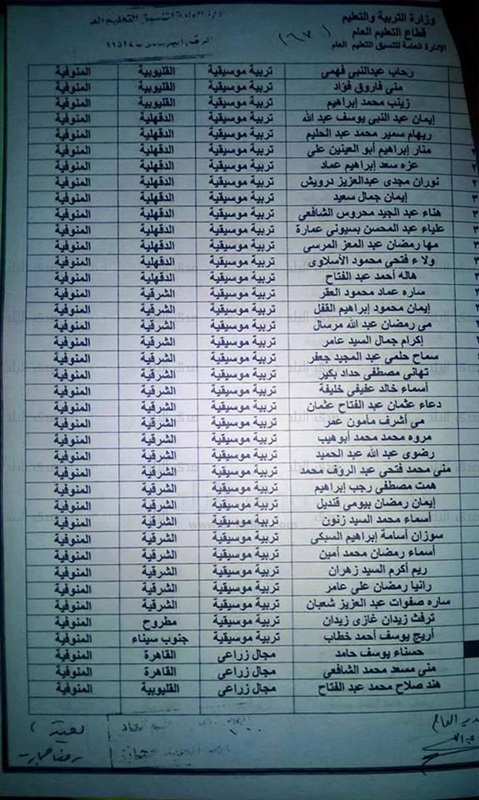 وزارة التربية والتعليم
قطاع التعليم العام
الإدارة العامة لتنسيق التعليم العام
(٦٧)
رحاب عبدالنبي فهمي تربية موسيقية القليوبية المنوفية
منى فاروق فؤاد تربية موسيقية القليوبية المنوفية
زينب محمد إبراهيم تربية موسيقية القليوبية المنوفية
إيمان عبد النبي يوسف عبد الله تربية موسيقية الدقهلية المنوفية
ريهام سمير محمد عبد الحليم تربية موسيقية الدقهلية المنوفية
منار إبراهيم أبو العينين على تربية موسيقية الدقهلية المنوفية
عزه سعد إبراهيم عماد تربية موسيقية الدقهلية المنوفية
نوران مجدى عبدالعزيز درويش تربية موسيقية الدقهلية المنوفية
إيمان جمال سعيد تربية موسيقية الدقهلية المنوفية
هناء عبد الجيد محروس الشافعي تربية موسيقية الدقهلية المنوفية
علياء عبد المحسن بسيونى عمارة تربية موسيقية الدقهلية المنوفية
مها رمضان عبد المعز المرسى تربية موسيقية الدقهلية المنوفية
ولاء فتحى محمود الأسلاوى تربية موسيقية الدقهلية المنوفية
هاله أحمد عبد الفتاح تربية موسيقية الدقهلية المنوفية
ساره عماد محمود العقر تربية موسيقية الشرقية المنوفية
إيمان محمود إبراهيم الفقل تربية موسيقية الشرقية المنوفية
مى رمضان عبد الله مرسال تربية موسيقية الشرقية المنوفية
إكرام جمال السيد عامر تربية موسيقية الشرقية المنوفية
سماح حلمى عبد المجيد جعفر تربية موسيقية الشرقية المنوفية
تهانى مصطفى حداد بكير تربية موسيقية الشرقية المنوفية
أسماء خالد عفيفى خليفة تربية موسيقية الشرقية المنوفية
دعاء عثمان عبد الفتاح عثمان تربية موسيقية الشرقية المنوفية
مى أشرف مأمون عمر تربية موسيقية الشرقية المنوفية
مروه محمد محمد أبوهيب تربية موسيقية الشرقية المنوفية
رضوى عبد الله عبد الحميد تربية موسيقية الشرقية المنوفية
منى محمد فتحى عبد الروف محمد تربية موسيقية الشرقية المنوفية
همت مصطفى رجب إبراهيم تربية موسيقية الشرقية المنوفية
إيمان رمضان بيومى قنديل تربية موسيقية الشرقية المنوفية
أسماء محمد السيد زنون تربية موسيقية الشرقية المنوفية
سوزان أسامة إبراهيم السبكى تربية موسيقية الشرقية المنوفية
أسماء رمضان محمد أمين تربية موسيقية الشرقية المنوفية
ريم أكرم السيد زهران تربية موسيقية الشرقية المنوفية
رانيا رمضان على عامر تربية موسيقية الشرقية المنوفية
ساره صفوات عبد العزيز شعبان تربية موسيقية الشرقية المنوفية
ترفث زيدان غازى زيدان تربية موسيقية مطروح المنوفية
أريج يوسف أحمد خطاب تربية موسيقية جنوب سيناء المنوفية
حسناء يوسف حامد مجال زراعى القاهرة المنوفية
منى مسعد محمد الشافعى مجال زراعى القاهرة المنوفية
هند صلاح محمد عبد الفتاح مجال زراعى القليوبية المنوفية